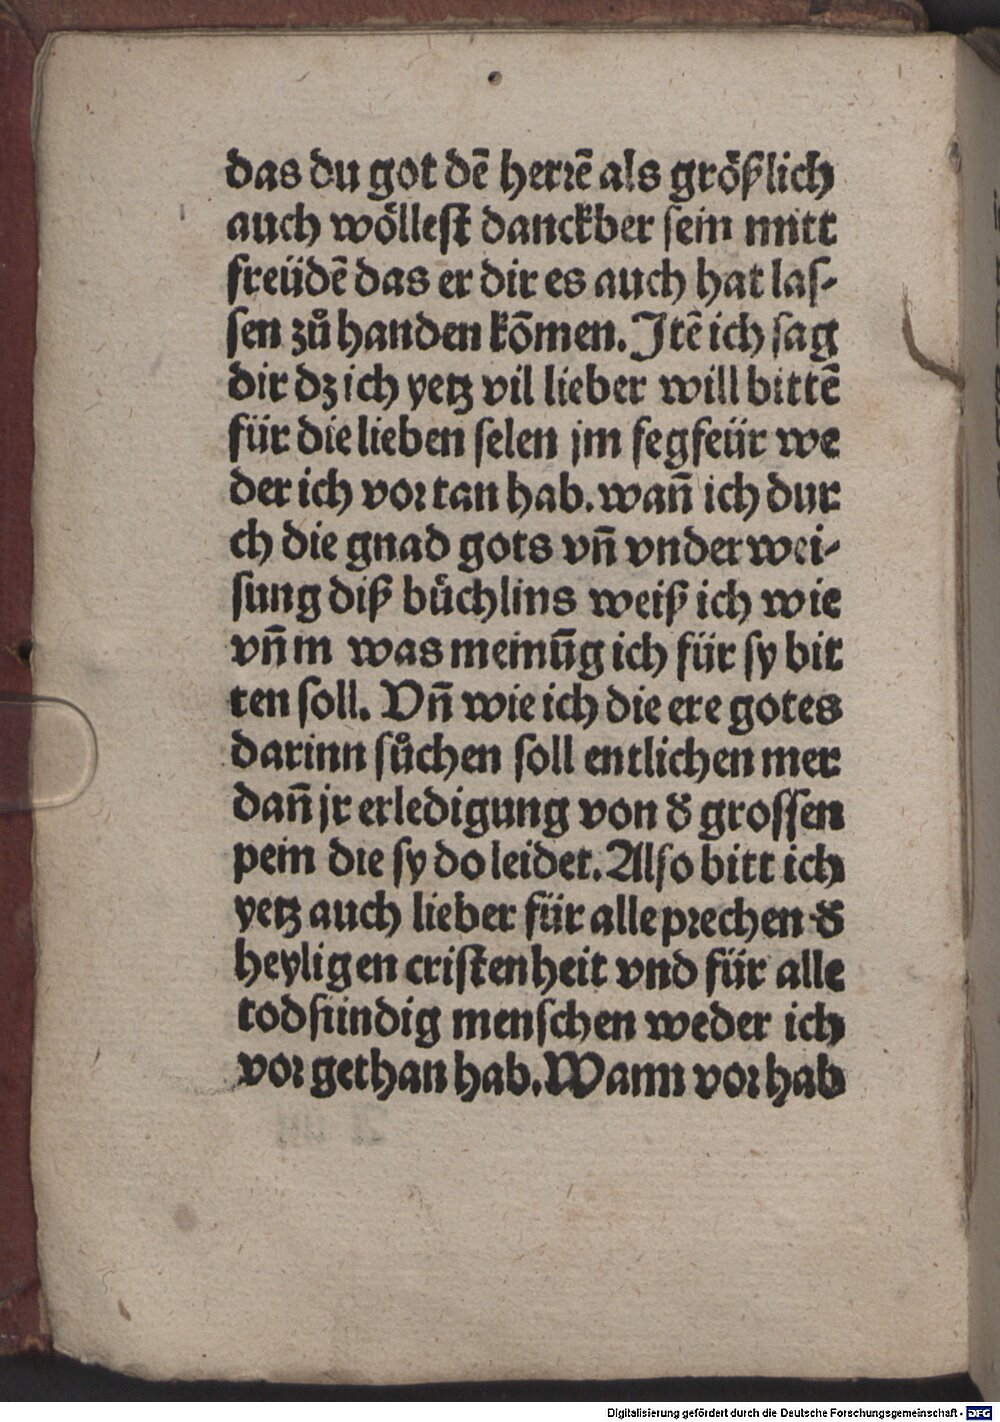 das du got dē herrē als größlich
auch wöllest danckber sein mitt
freüdē das er dir es auch hat las-
sen zů handen kōmen. Itē ich sag
dir dz ich yetz vil lieber will bittē
für die lieben selen jm fegfeür we
der ich vor tan hab. wañ ich dur
ch die gnad gots vñ vnderwei-
sung diß büchlins weiß ich wie
vñ in was meinūg ich für sy bit
ten soll. Vñ wie ich die ere gotes
darinn sůchen soll entlichen mer
dañ jr erledigung von d̕ grossen
pein die sy do leidet. Also bitt ich
yetz auch lieber für alle prechen d̕
heyligen cristenheit vnd für alle
todsündig menschen weder ich
vor gethan hab. Wann vor hab
Digitalisierung gefördert durch die Deutsche Forschungsgemeinschaft - DFG